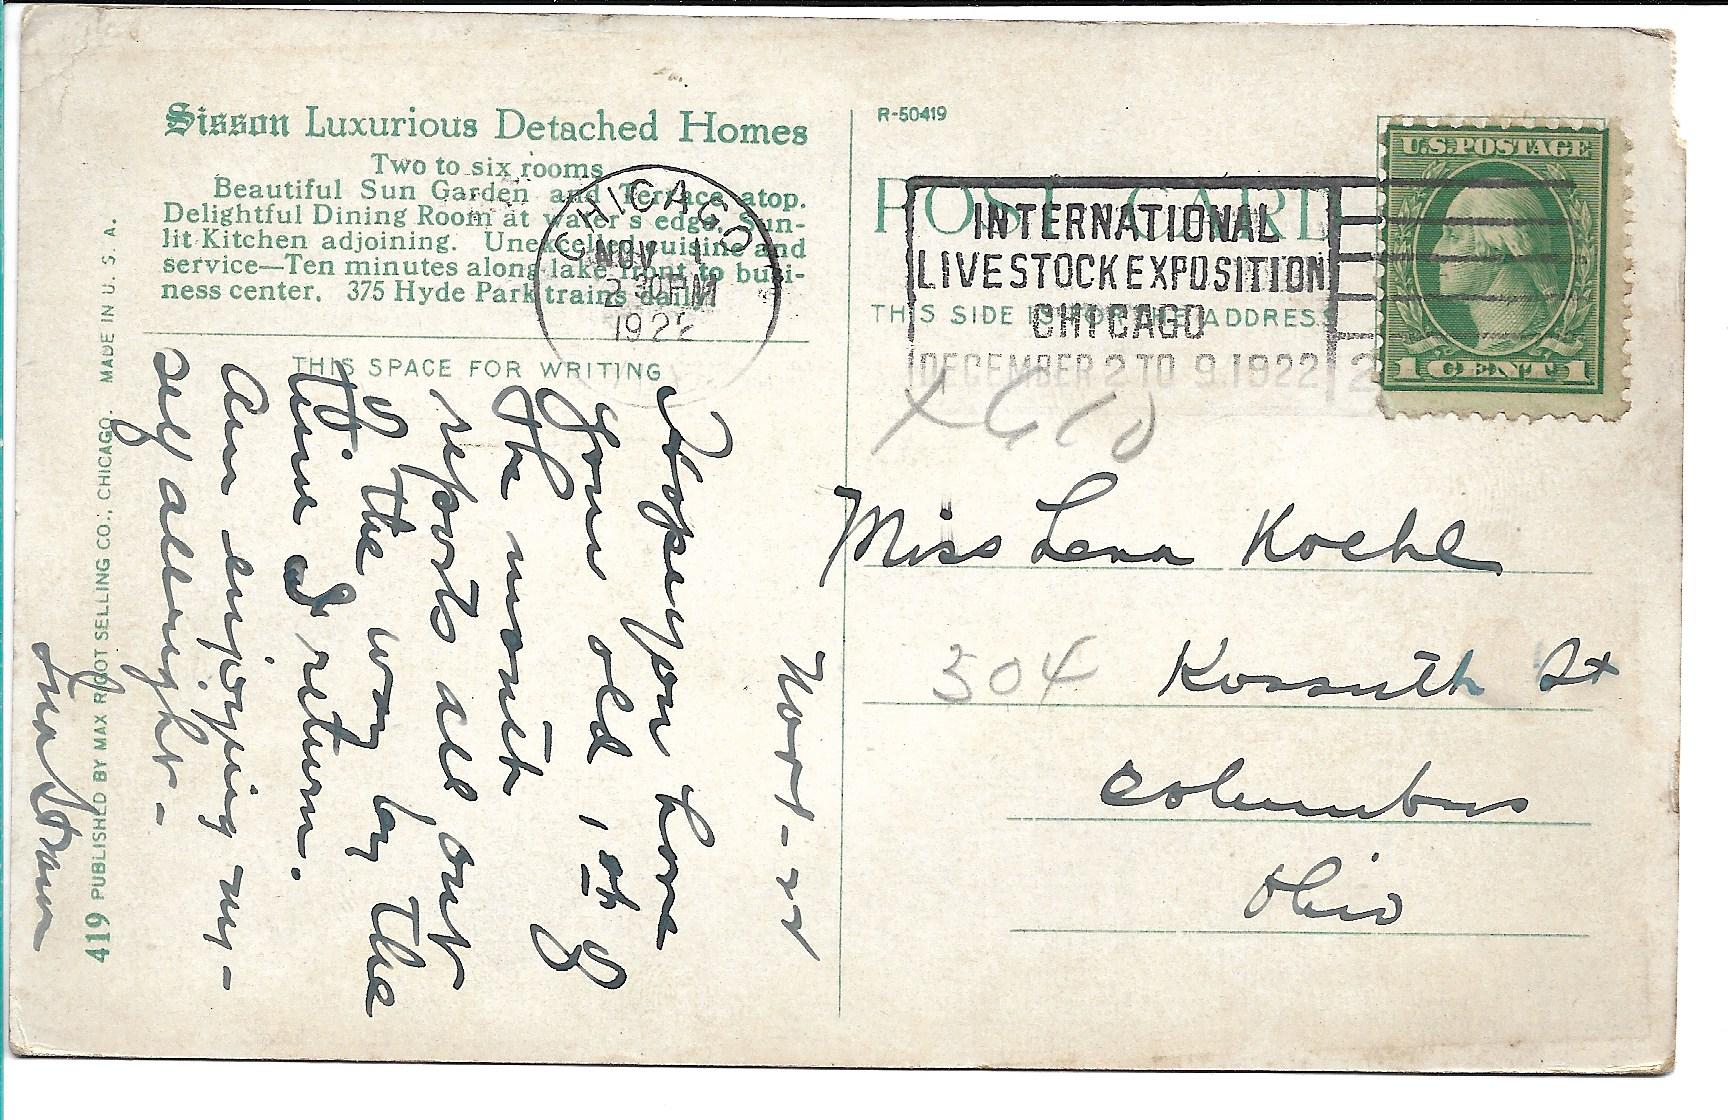 Sisson Luxurious Detached Homes
Two to six rooms
Beautiful Sun Garden and Terrace atop.
Delightful Dining Room at water's edge. Sun-
lit Kitchen adjoining. Unexcelled cuisine and
service—Ten minutes along lake front to busi-
ness center. 375 Hyde Park trains daily
THIS SPACE FOR WRITING
CHICAGO
NOV 1
2 30 PM
1922
R-50419
POST CARD
THIS SIDE IS FOR THE ADDRESS
INTERNATIONAL
LIVESTOCK EXPOSITION
CHICAGO
DECEMBER 2 TO 9.1922
2
U.S. POSTAGE
1 CENT 1
Miss Lena Koehl
304 Kossuth St
Columbus
Ohio
Nov 1-22
I hope you have
your old 1st of
the month
reports all out
of the way by the
time I return.
Am enjoying my-
self allright-
419 PUBLISHED BY MAX RIGOT SELLING CO., CHICAGO. MADE IN U. S. A.